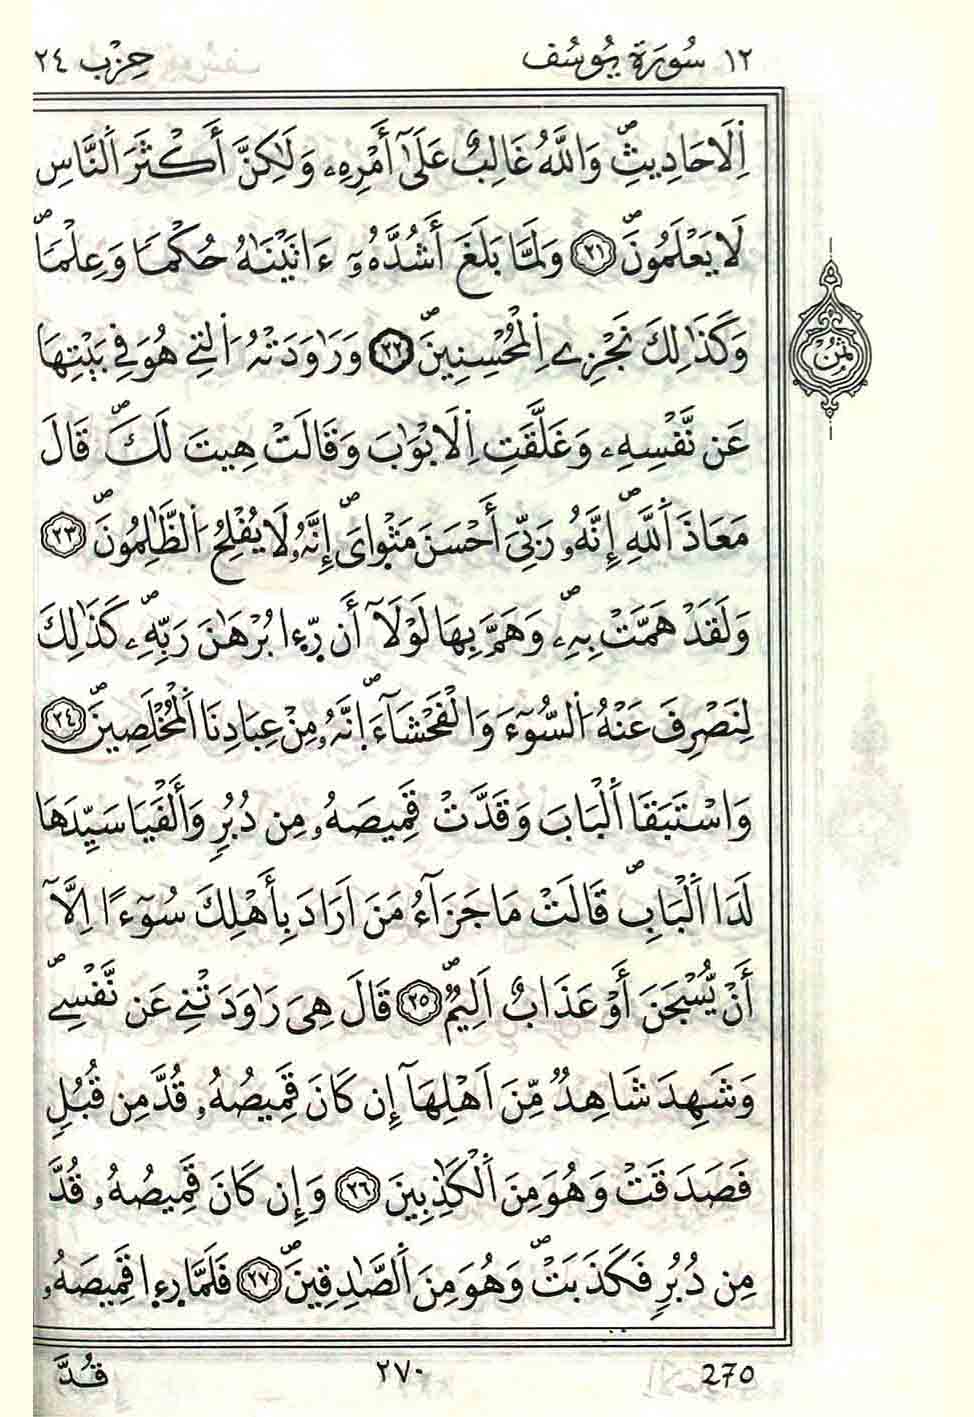 ١٢ سُورَةُ يُوسُف حِزْب ٢٤
اِ۬لَاحَادِيثِۖ وَاللَّهُ غَالِبٌ عَلَىٰٓ أَمْرِهِۦ وَلَٰكِنَّ أَكْثَرَ اَ۬لنَّاسِ
لَا يَعْلَمُونَۖ ٢١ وَلَمَّا بَلَغَ أَشُدَّهُۥٓ ءَاتَيْنَٰهُ حُكْمٗا وَعِلْمٗاۖ
وَكَذَٰلِكَ نَجْزِے اِ۬لْمُحْسِنِينَۖ ٢٢ وَرَٰوَدَتْهُ اُ۬لتِے هُوَ فِے بَيْتِهَا
عَن نَّفْسِهِۦ وَغَلَّقَتِ اِ۬لَابْوَٰبَ وَقَالَتْ هِيتَ لَكَۖ قَالَ
مَعَاذَ اَ۬للَّهِۖ إِنَّهُۥ رَبِّيَ أَحْسَنَ مَثْوَايَۖ إِنَّهُۥ لَا يُفْلِحُ اُ۬لظَّٰلِمُونَۖ ٢٣
وَلَقَدْ هَمَّتْ بِهِۦۖ وَهَمَّ بِهَا لَوْلَآ أَن رّ۪ء۪ا بُرْهَٰنَ رَبِّهِۦۖ كَذَٰلِكَ
لِنَصْرِفَ عَنْهُ اُ۬لسُّوٓءَ وَالْفَحْشَآءَۖ اِنَّهُۥ مِنْ عِبَادِنَا اَ۬لْمُخْلَصِينَۖ ٢٤
وَاسْتَبَقَا اَ۬لْبَابَ وَقَدَّتْ قَمِيصَهُۥ مِن دُبُرٖ وَأَلْفَيَا سَيِّدَهَا
لَدَا اَ۬لْبَابِۖ قَالَتْ مَا جَزَآءُ مَنَ اَرَادَ بِأَهْلِكَ سُوٓءاً اِلَّآ
أَنْ يُّسْجَنَ أَوْ عَذَابٌ اَلِيمٌۖ ٢٥ قَالَ هِيَ رَٰوَدَتْنِے عَن نَّفْسِےۖ
وَشَهِدَ شَاهِدٞ مِّنَ اَهْلِهَآ إِن كَانَ قَمِيصُهُۥ قُدَّ مِن قُبُلٖ
فَصَدَقَتْ وَهُوَ مِنَ اَ۬لْكَٰذِبِينَ ٢٦ وَإِن كَانَ قَمِيصُهُۥ قُدَّ
مِن دُبُرٖ فَكَذَبَتْۖ وَهُوَ مِنَ اَ۬لصَّٰدِقِينَۖ ٢٧ فَلَمَّا ر۪ء۪ا قَمِيصَهُۥ
ثُمُن
قُدَّ ٢٧٠ 270